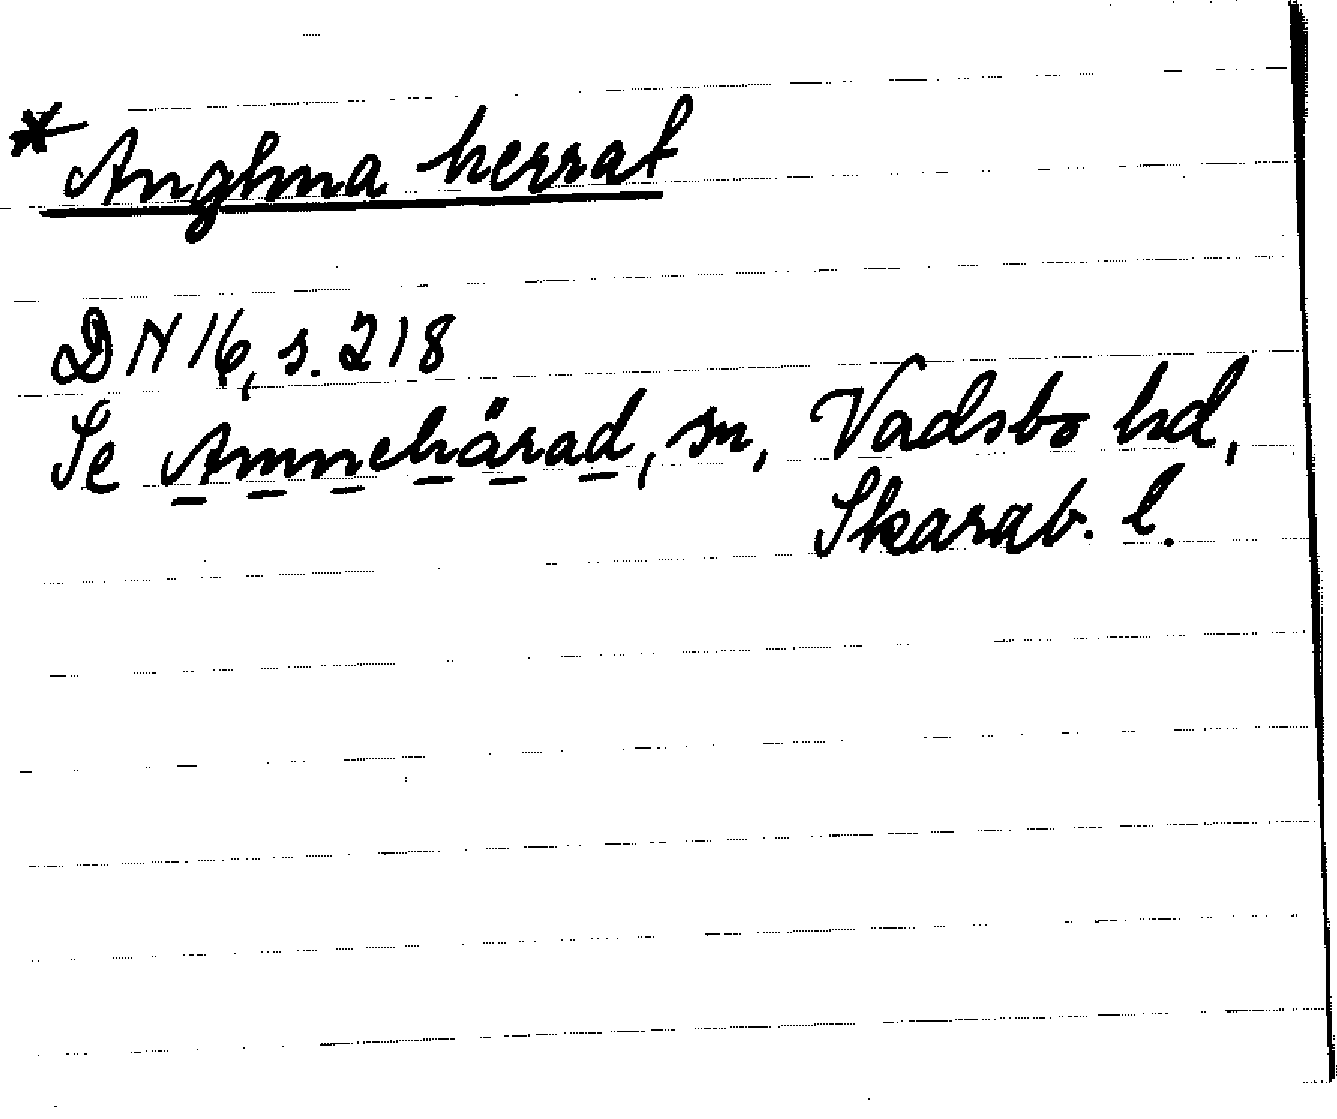 * Anghna herrat
DN 16, s. 218
Se Amnehärad, sn, Vadsbo hd,
Skarab. l.